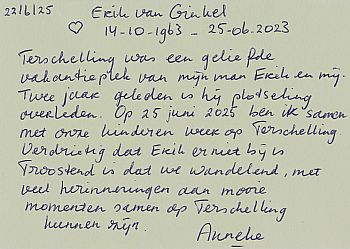 22/6/25 Erik van Ginkel
♡ 14-10-1963 - 25-06-2023
Terschelling was een geliefde
vakantieplek van mijn man Erik en mij.
Twee jaar geleden is hij plotseling
overleden. Op 25 juni 2025 ben ik samen
met onze kinderen weer op Terschelling.
Verdrietig dat Erik er niet bij is
Troostend is dat we wandelend, met
veel herinneringen aan mooie
momenten samen op Terschelling
kunnen zijn.
Anneke